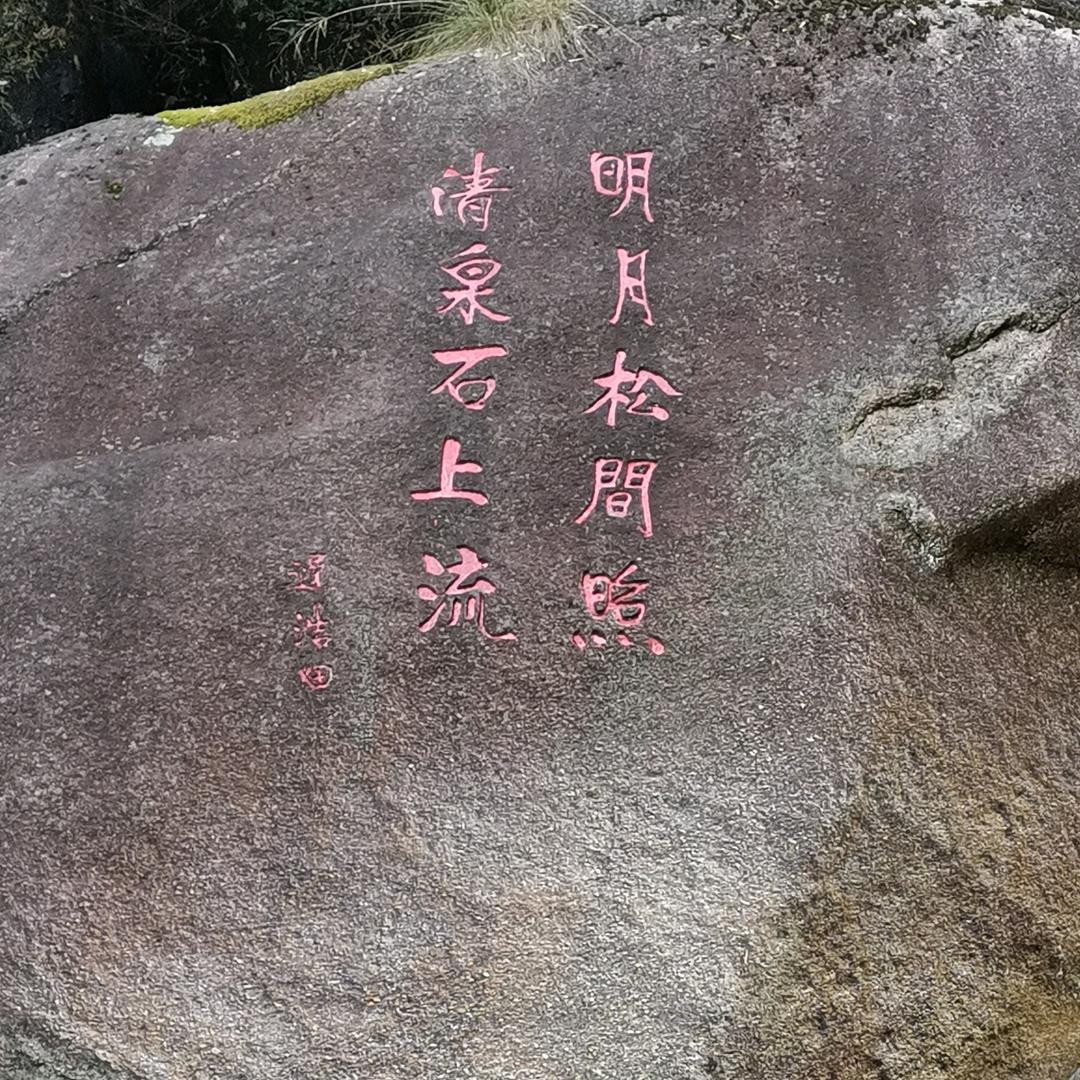 明月松間照
清泉石上流
浩田